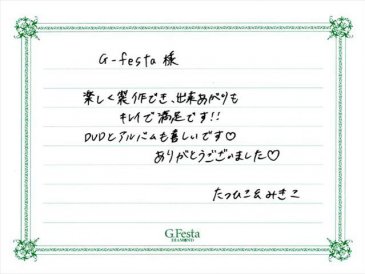 G-festa 様
楽しく製作でき、出来あがりも
キレイで満足です!!
DVDとアルバムも嬉しいです♡
ありがとうございました♡
たつひこ&みきこ
G.Festa
DIAMOND